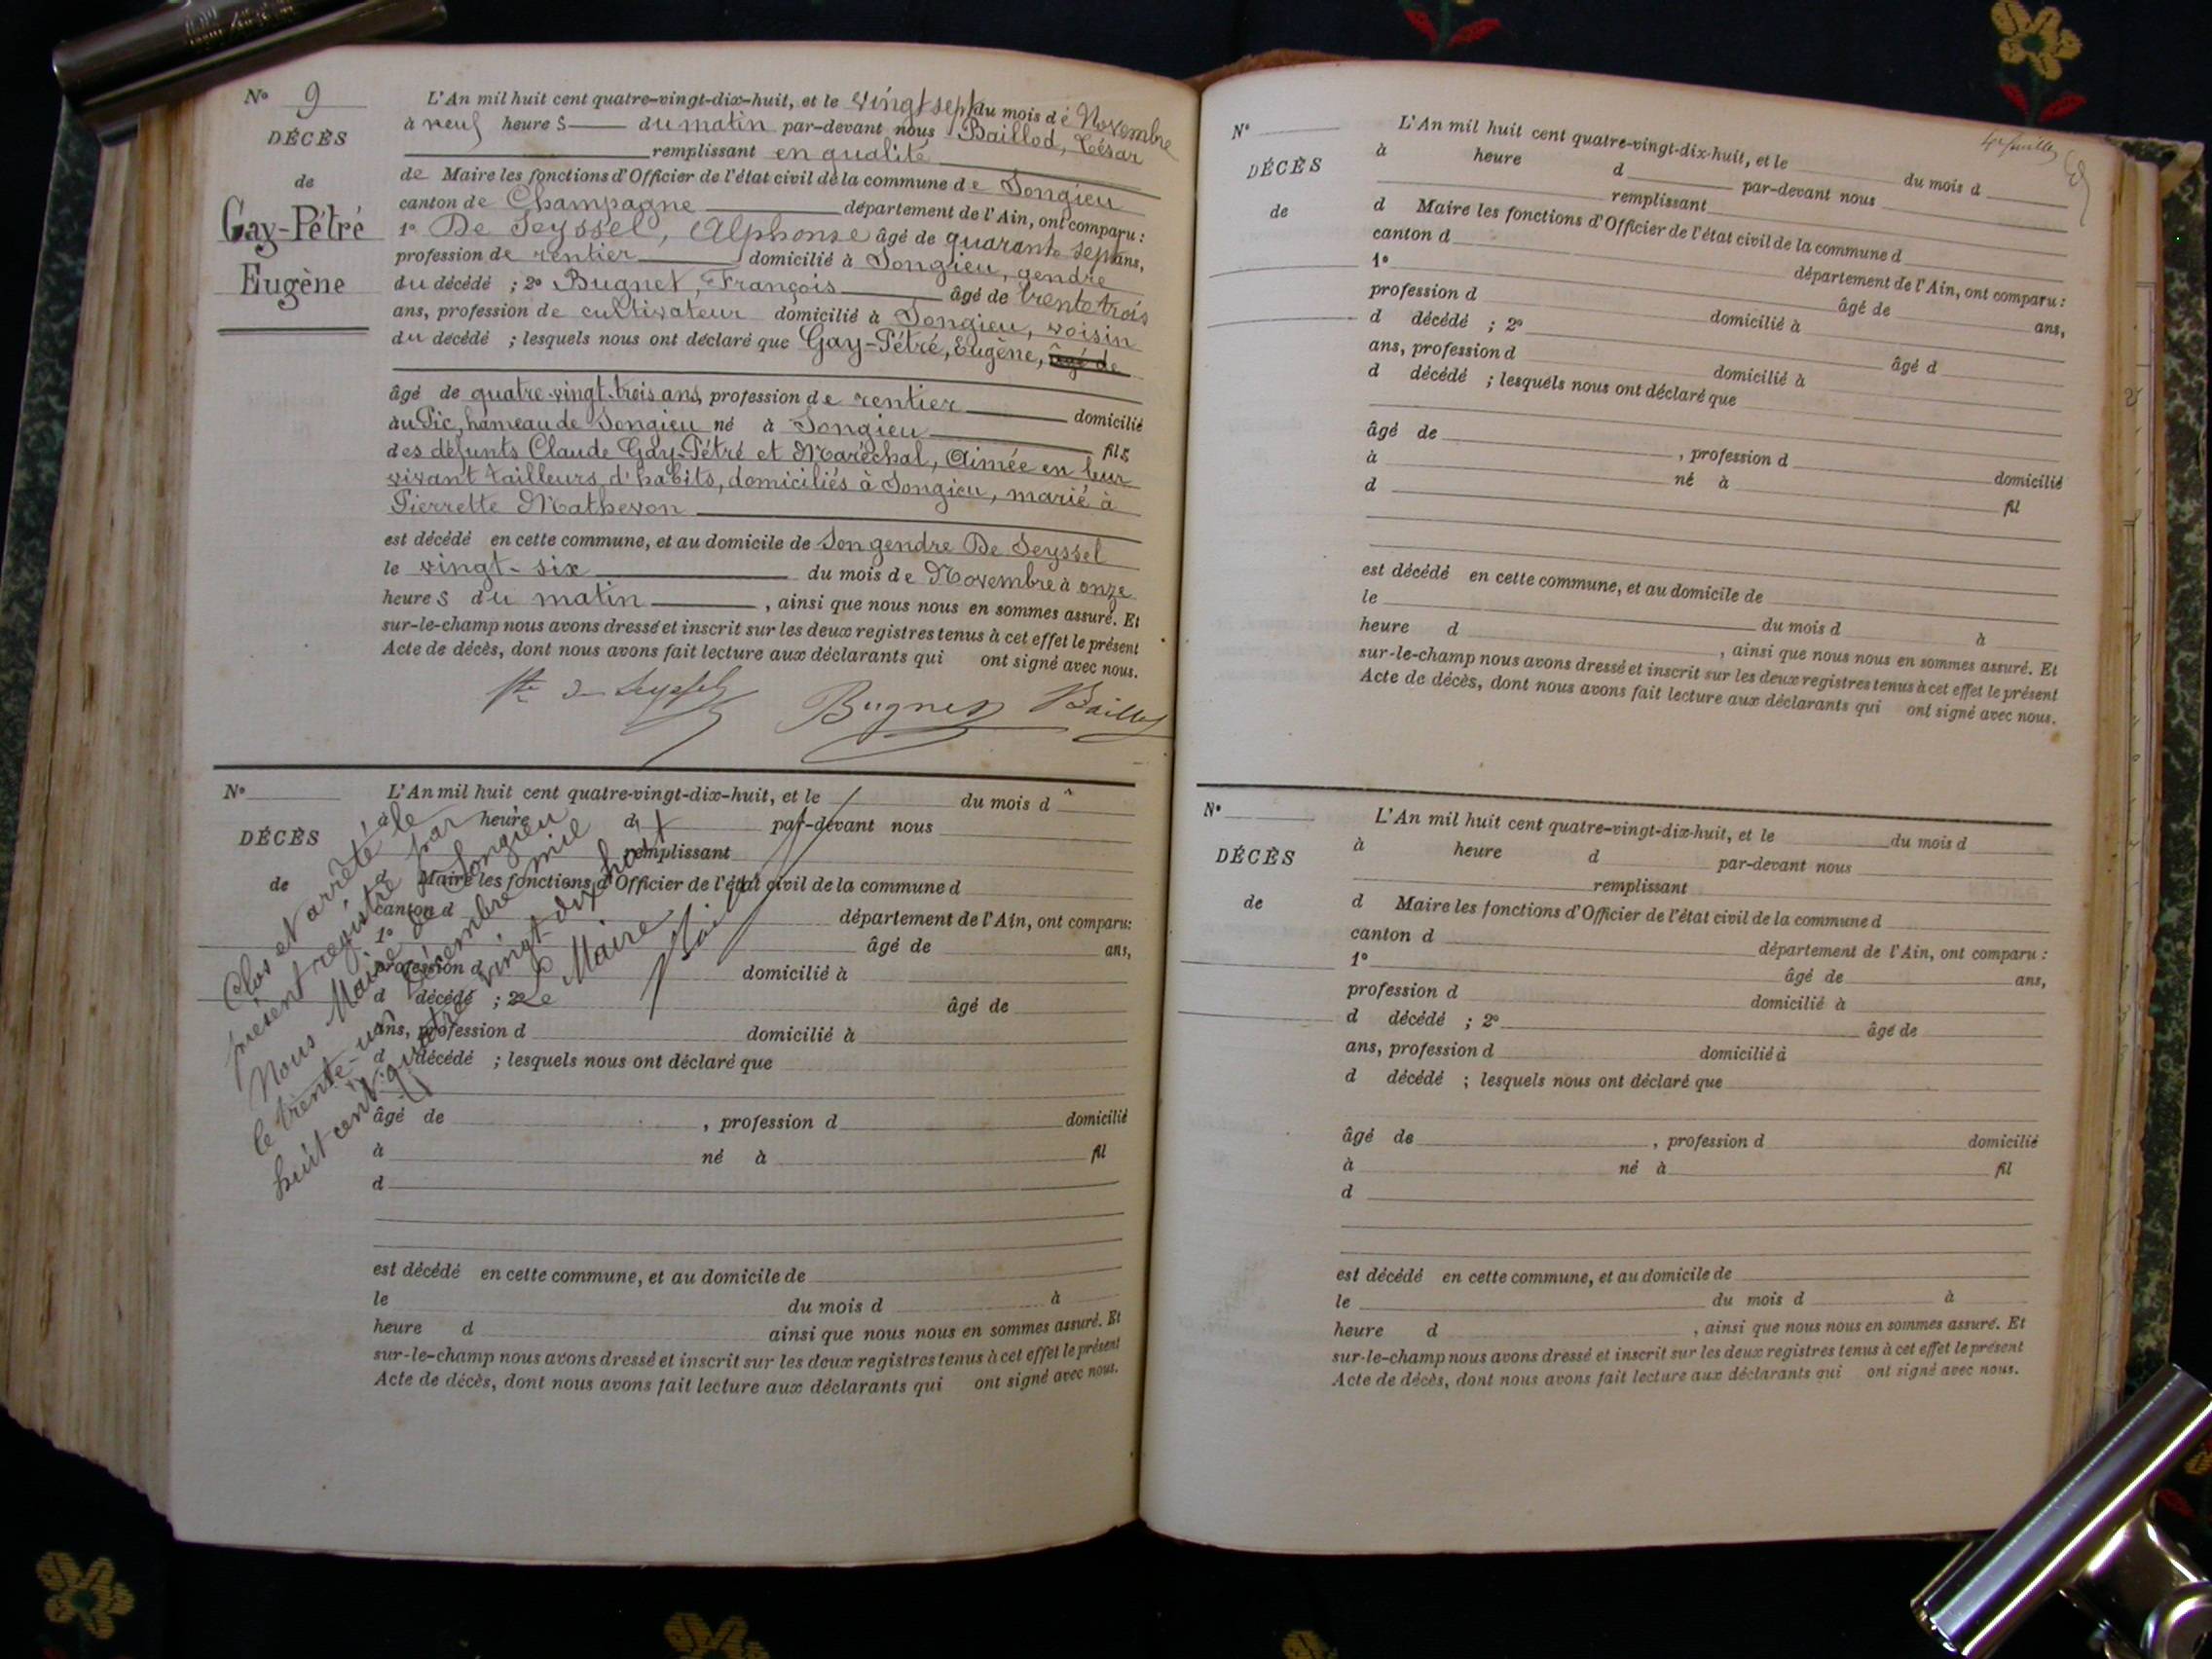 N° 9
DÉCÈS
de
Gay-Pétré
Eugène
L'An mil huit cent quatre-vingt-dix-huit, et le vingt sept du mois de Novembre
à neuf heures du matin par-devant nous Baillod, César
remplissant en qualité
de Maire les fonctions d'Officier de l'état civil de la commune de Songieu
canton de Champagne département de l'Ain, ont comparu :
1° De Seyssel, Alphonse âgé de quarante sept ans,
profession de rentier domicilié à Songieu, gendre
du décédé ; 2° Bugnet, François âgé de trente trois
ans, profession de cultivateur domicilié à Songieu, voisin
du décédé ; lesquels nous ont déclaré que Gay-Pétré, Eugène, âgé de
âgé de quatre-vingt-trois ans, profession de rentier domicilié
au Pic, hameau de Songieu né à Songieu fils
des défunts Claude Gay-Pétré et Maréchal, Aimée en leur
vivant tailleurs d'habits, domiciliés à Songieu, marié à
Pierrette Mathevon
est décédé en cette commune, et au domicile de son gendre De Seyssel
le vingt-six du mois de Novembre à onze
heures du matin , ainsi que nous nous en sommes assuré. Et
sur-le-champ nous avons dressé et inscrit sur les deux registres tenus à cet effet le présent
Acte de décès, dont nous avons fait lecture aux déclarants qui ont signé avec nous.
de Seyssel Bugnet Baillod
N°
DÉCÈS
de
L'An mil huit cent quatre-vingt-dix-huit, et le du mois d
à heure d par-devant nous
remplissant
d Maire les fonctions d'Officier de l'état civil de la commune d
canton d département de l'Ain, ont comparu :
1° âgé de ans,
profession d domicilié à
d décédé ; 2° âgé de
ans, profession d domicilié à
d décédé ; lesquels nous ont déclaré que
âgé de , profession d domicilié
à né à fil
d
est décédé en cette commune, et au domicile de
le du mois d à
heure d ainsi que nous nous en sommes assuré. Et
sur-le-champ nous avons dressé et inscrit sur les deux registres tenus à cet effet le présent
Acte de décès, dont nous avons fait lecture aux déclarants qui ont signé avec nous.
Clos et arrêté le
présent registre par
Nous Maire de Songieu
le trente-un Décembre mil
huit cent quatre vingt dix huit
Le Maire
N°
DÉCÈS
de
L'An mil huit cent quatre-vingt-dix-huit, et le du mois d
à heure d par-devant nous
remplissant
d Maire les fonctions d'Officier de l'état civil de la commune d
canton d département de l'Ain, ont comparu :
1° âgé de ans,
profession d domicilié à
d décédé ; 2° âgé d
ans, profession d domicilié à
d décédé ; lesquels nous ont déclaré que
âgé de , profession d domicilié
à né à fil
d
est décédé en cette commune, et au domicile de
le du mois d à
heure d , ainsi que nous nous en sommes assuré. Et
sur-le-champ nous avons dressé et inscrit sur les deux registres tenus à cet effet le présent
Acte de décès, dont nous avons fait lecture aux déclarants qui ont signé avec nous.
N°
DÉCÈS
de
L'An mil huit cent quatre-vingt-dix-huit, et le du mois d
à heure d par-devant nous
remplissant
d Maire les fonctions d'Officier de l'état civil de la commune d
canton d département de l'Ain, ont comparu :
1° âgé de ans,
profession d domicilié à
d décédé ; 2° âgé de
ans, profession d domicilié à
d décédé ; lesquels nous ont déclaré que
âgé de , profession d domicilié
à né à fil
d
est décédé en cette commune, et au domicile de
le du mois d à
heure d , ainsi que nous nous en sommes assuré. Et
sur-le-champ nous avons dressé et inscrit sur les deux registres tenus à cet effet le présent
Acte de décès, dont nous avons fait lecture aux déclarants qui ont signé avec nous.